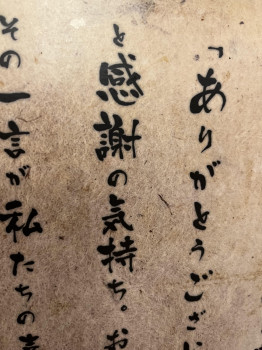 「ありがとうござい
と感謝の気持ち。お
その一言が私たちの